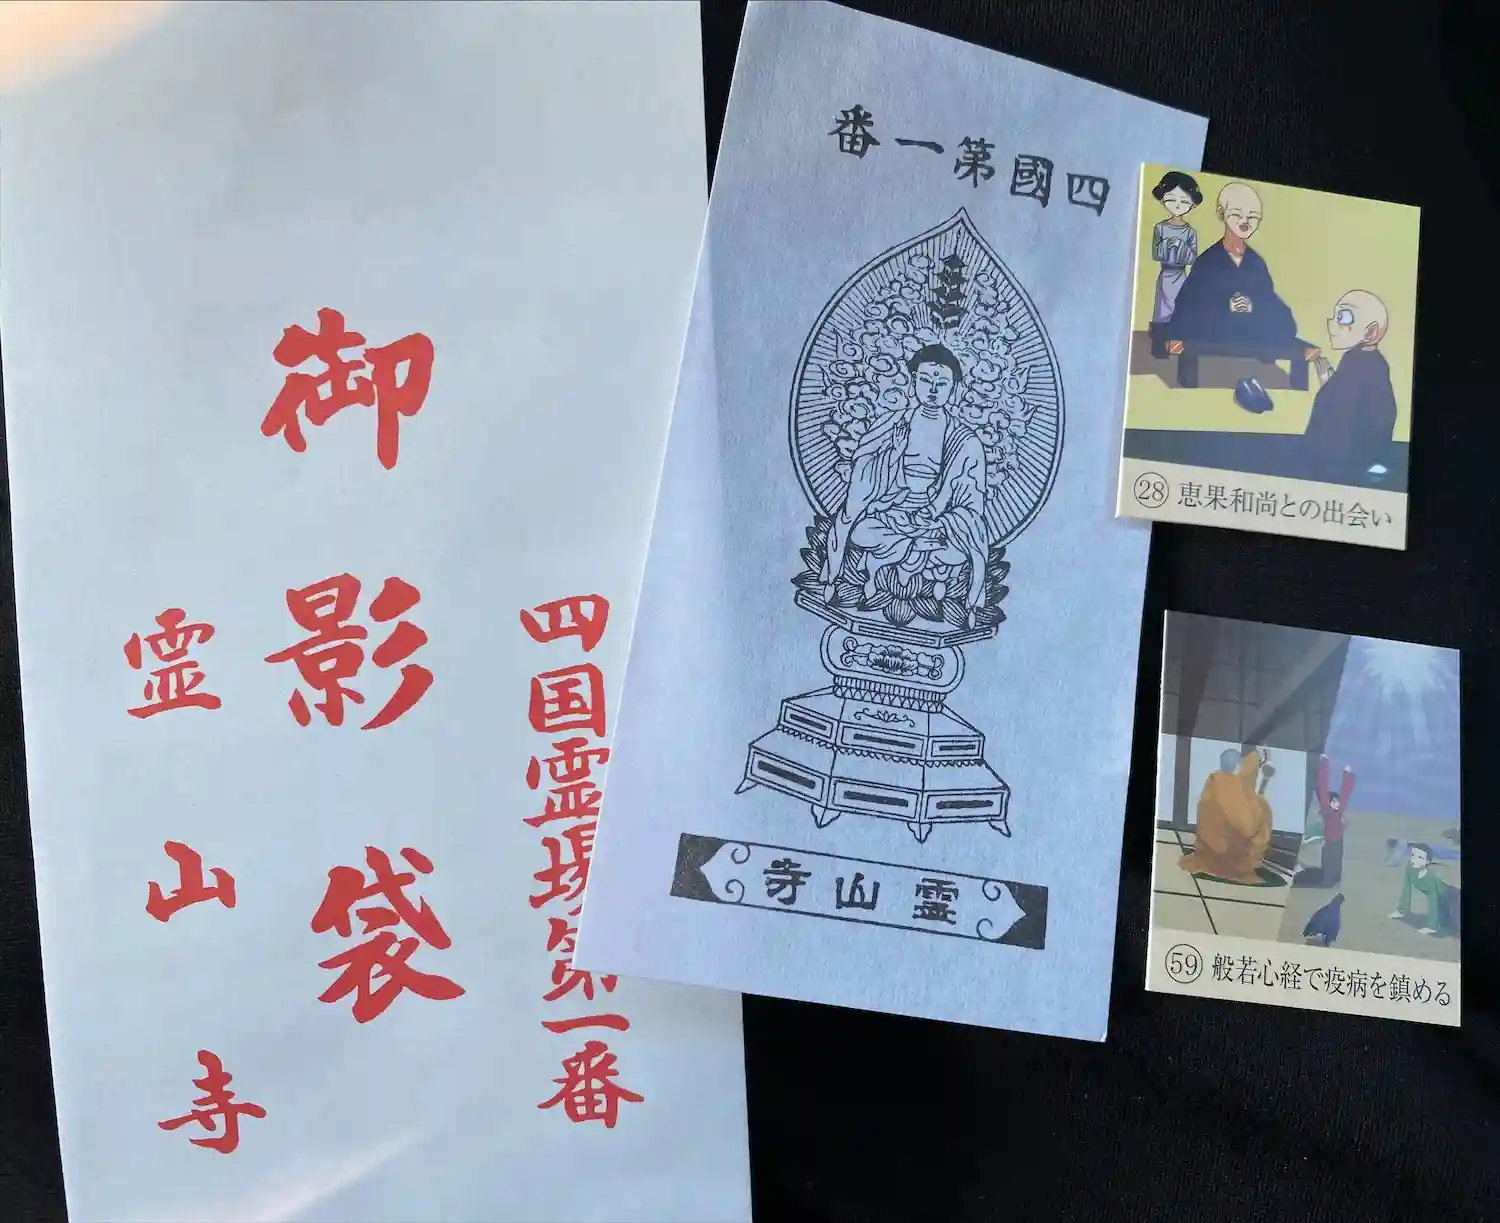 四国霊場第一番
御影袋
霊山寺
四國第一番
霊山寺
㉘ 恵果和尚との出会い
㊾ 般若心経で疫病を鎮める